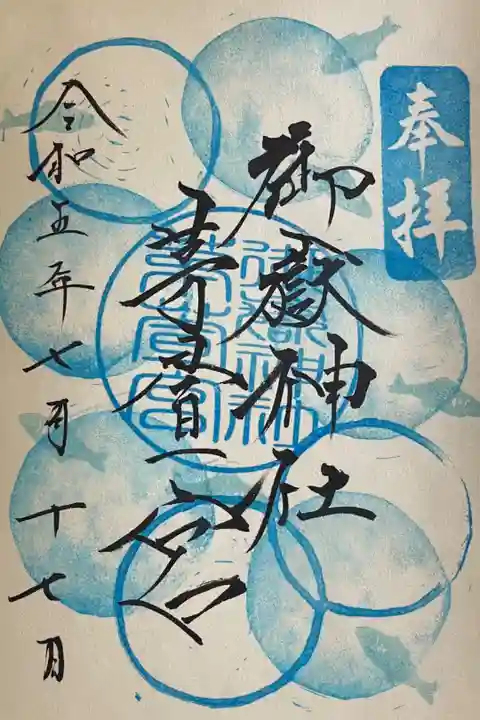 奉拝
御嶽神社
茅萱宮
令和五年七月十七日